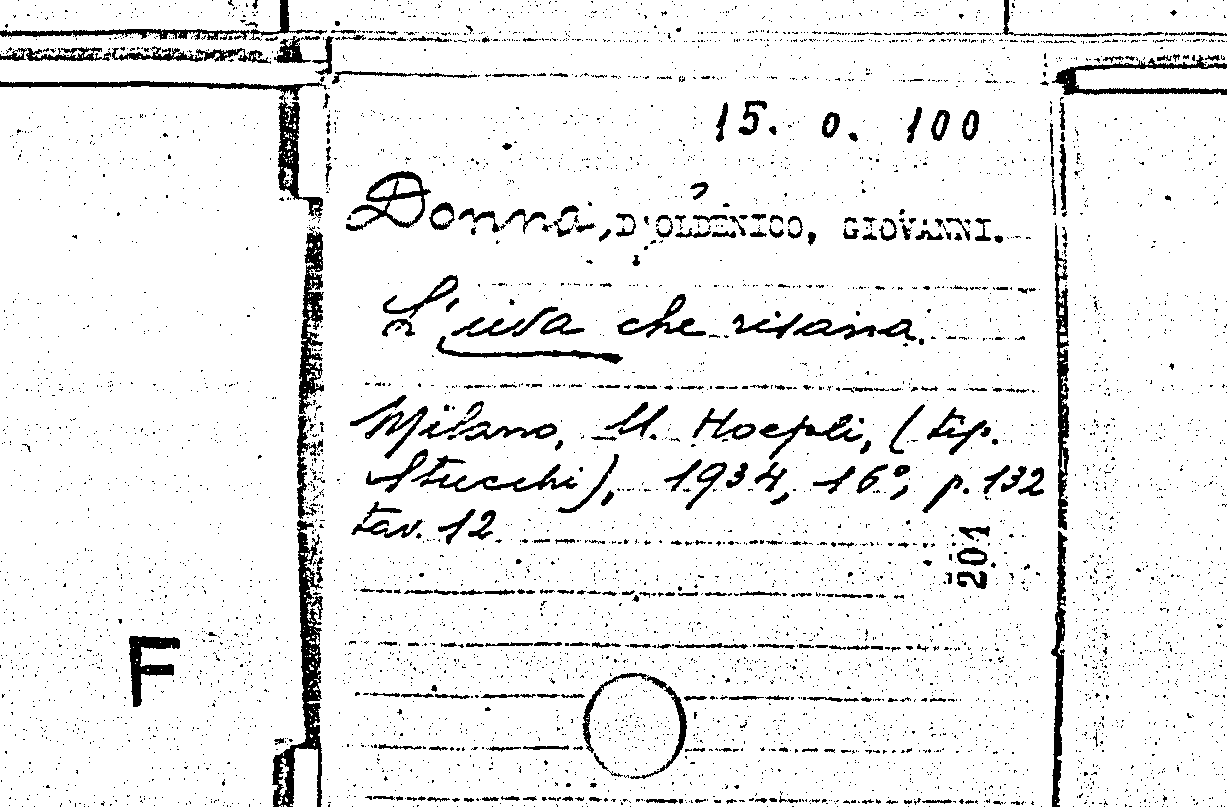 15. 0. 100
Donna, D'OLDENICO, GIOVANNI.
L'uva che risana.
Milano, U. Hoepli, (tip.
Stucchi), 1934, 16°, p. 132
tav. 12
201
F